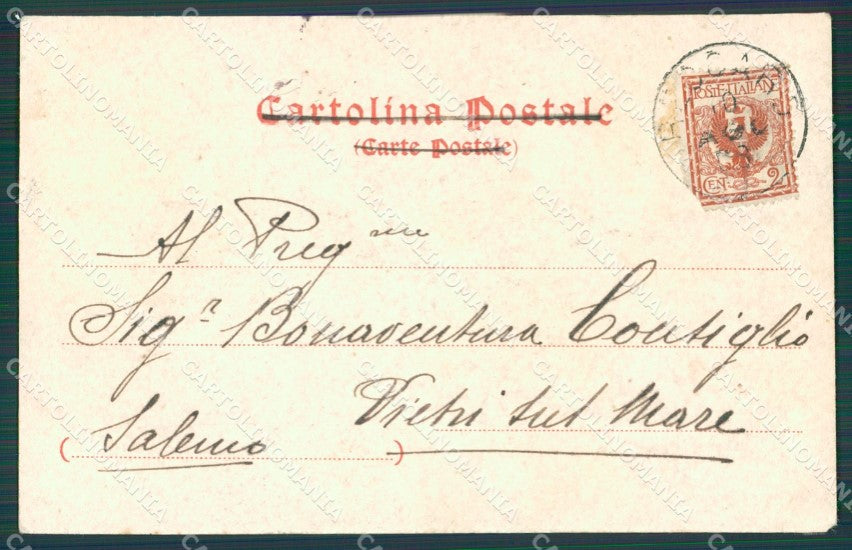 Cartolina Postale
(Carte Postale)
POSTE ITALIANE
CEN. 2
AGO
Al Preg.mo
Sigr. Bonaventura Contiglio
Vietri sul Mare
(Salerno)
CARTOLINOMANIA